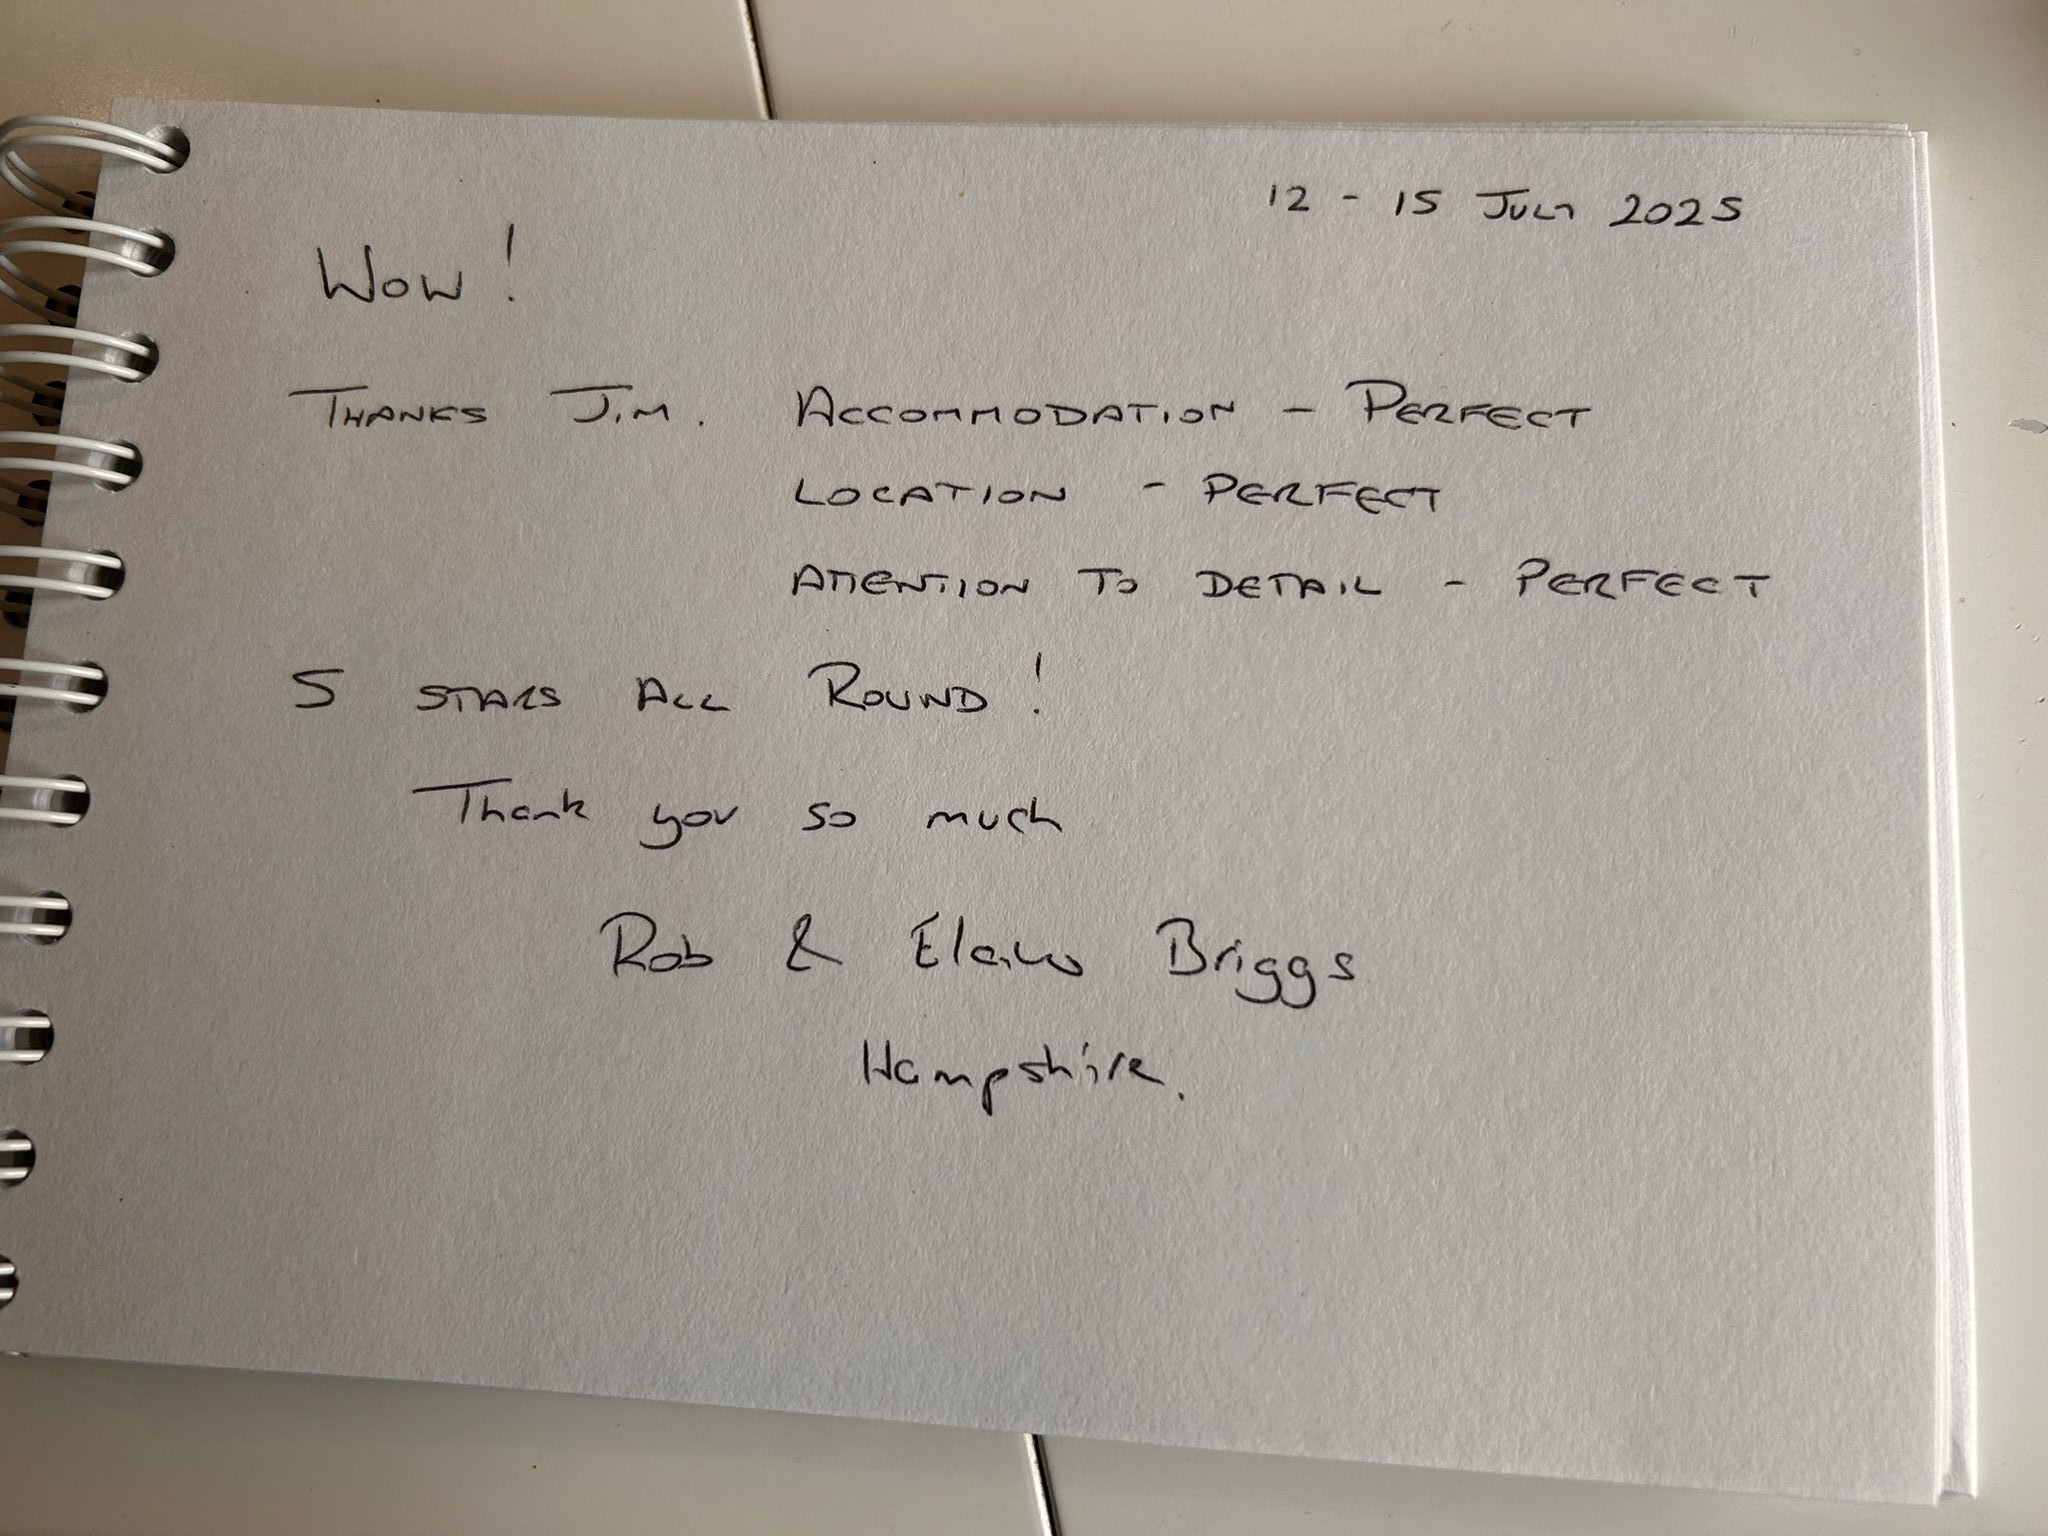 12 - 15 JULY 2025
WOW!
THANKS JIM. ACCOMMODATION - PERFECT
LOCATION - PERFECT
ATTENTION TO DETAIL - PERFECT
5 STARS ALL ROUND!
Thank you so much
Rob & Elaine Briggs
Hampshire.